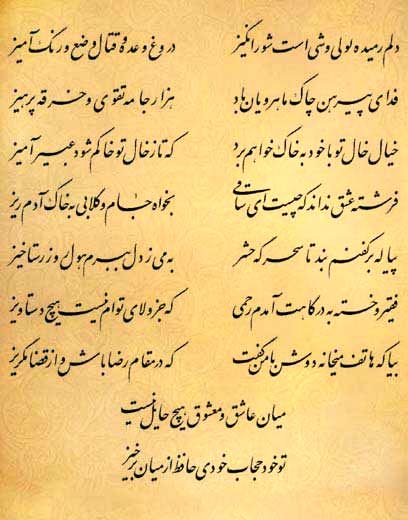 دلم رمیده لولی وشی است شورانگیز دروغ وعده و قتال وضع و رنگ آمیز
فدای پیرهن چاک ماهرویان باد هزار جامه تقوی و خرقه پرهیز
خیال خال تو با خود به خاک خواهم برد که تا ز خال تو خاکم شود عبیر آمیز
فرشته عشق نداند که چیست ای ساقی بخواه جام و گلابی به خاک آدم ریز
پیاله بر کفنم بند تا سحرگه حشر به می ز دل ببرم هول روز رستاخیز
فقیر و خسته به درگاهت آمدم رحمی که جز ولای توام نیست هیچ دستاویز
بیا که هاتف میخانه دوش با من گفت که در مقام رضا باش و از قضا مگریز
میان عاشق و معشوق هیچ حایل نیست
تو خود حجاب خودی حافظ از میان برخیز